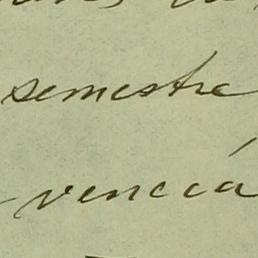 semestre
vencía